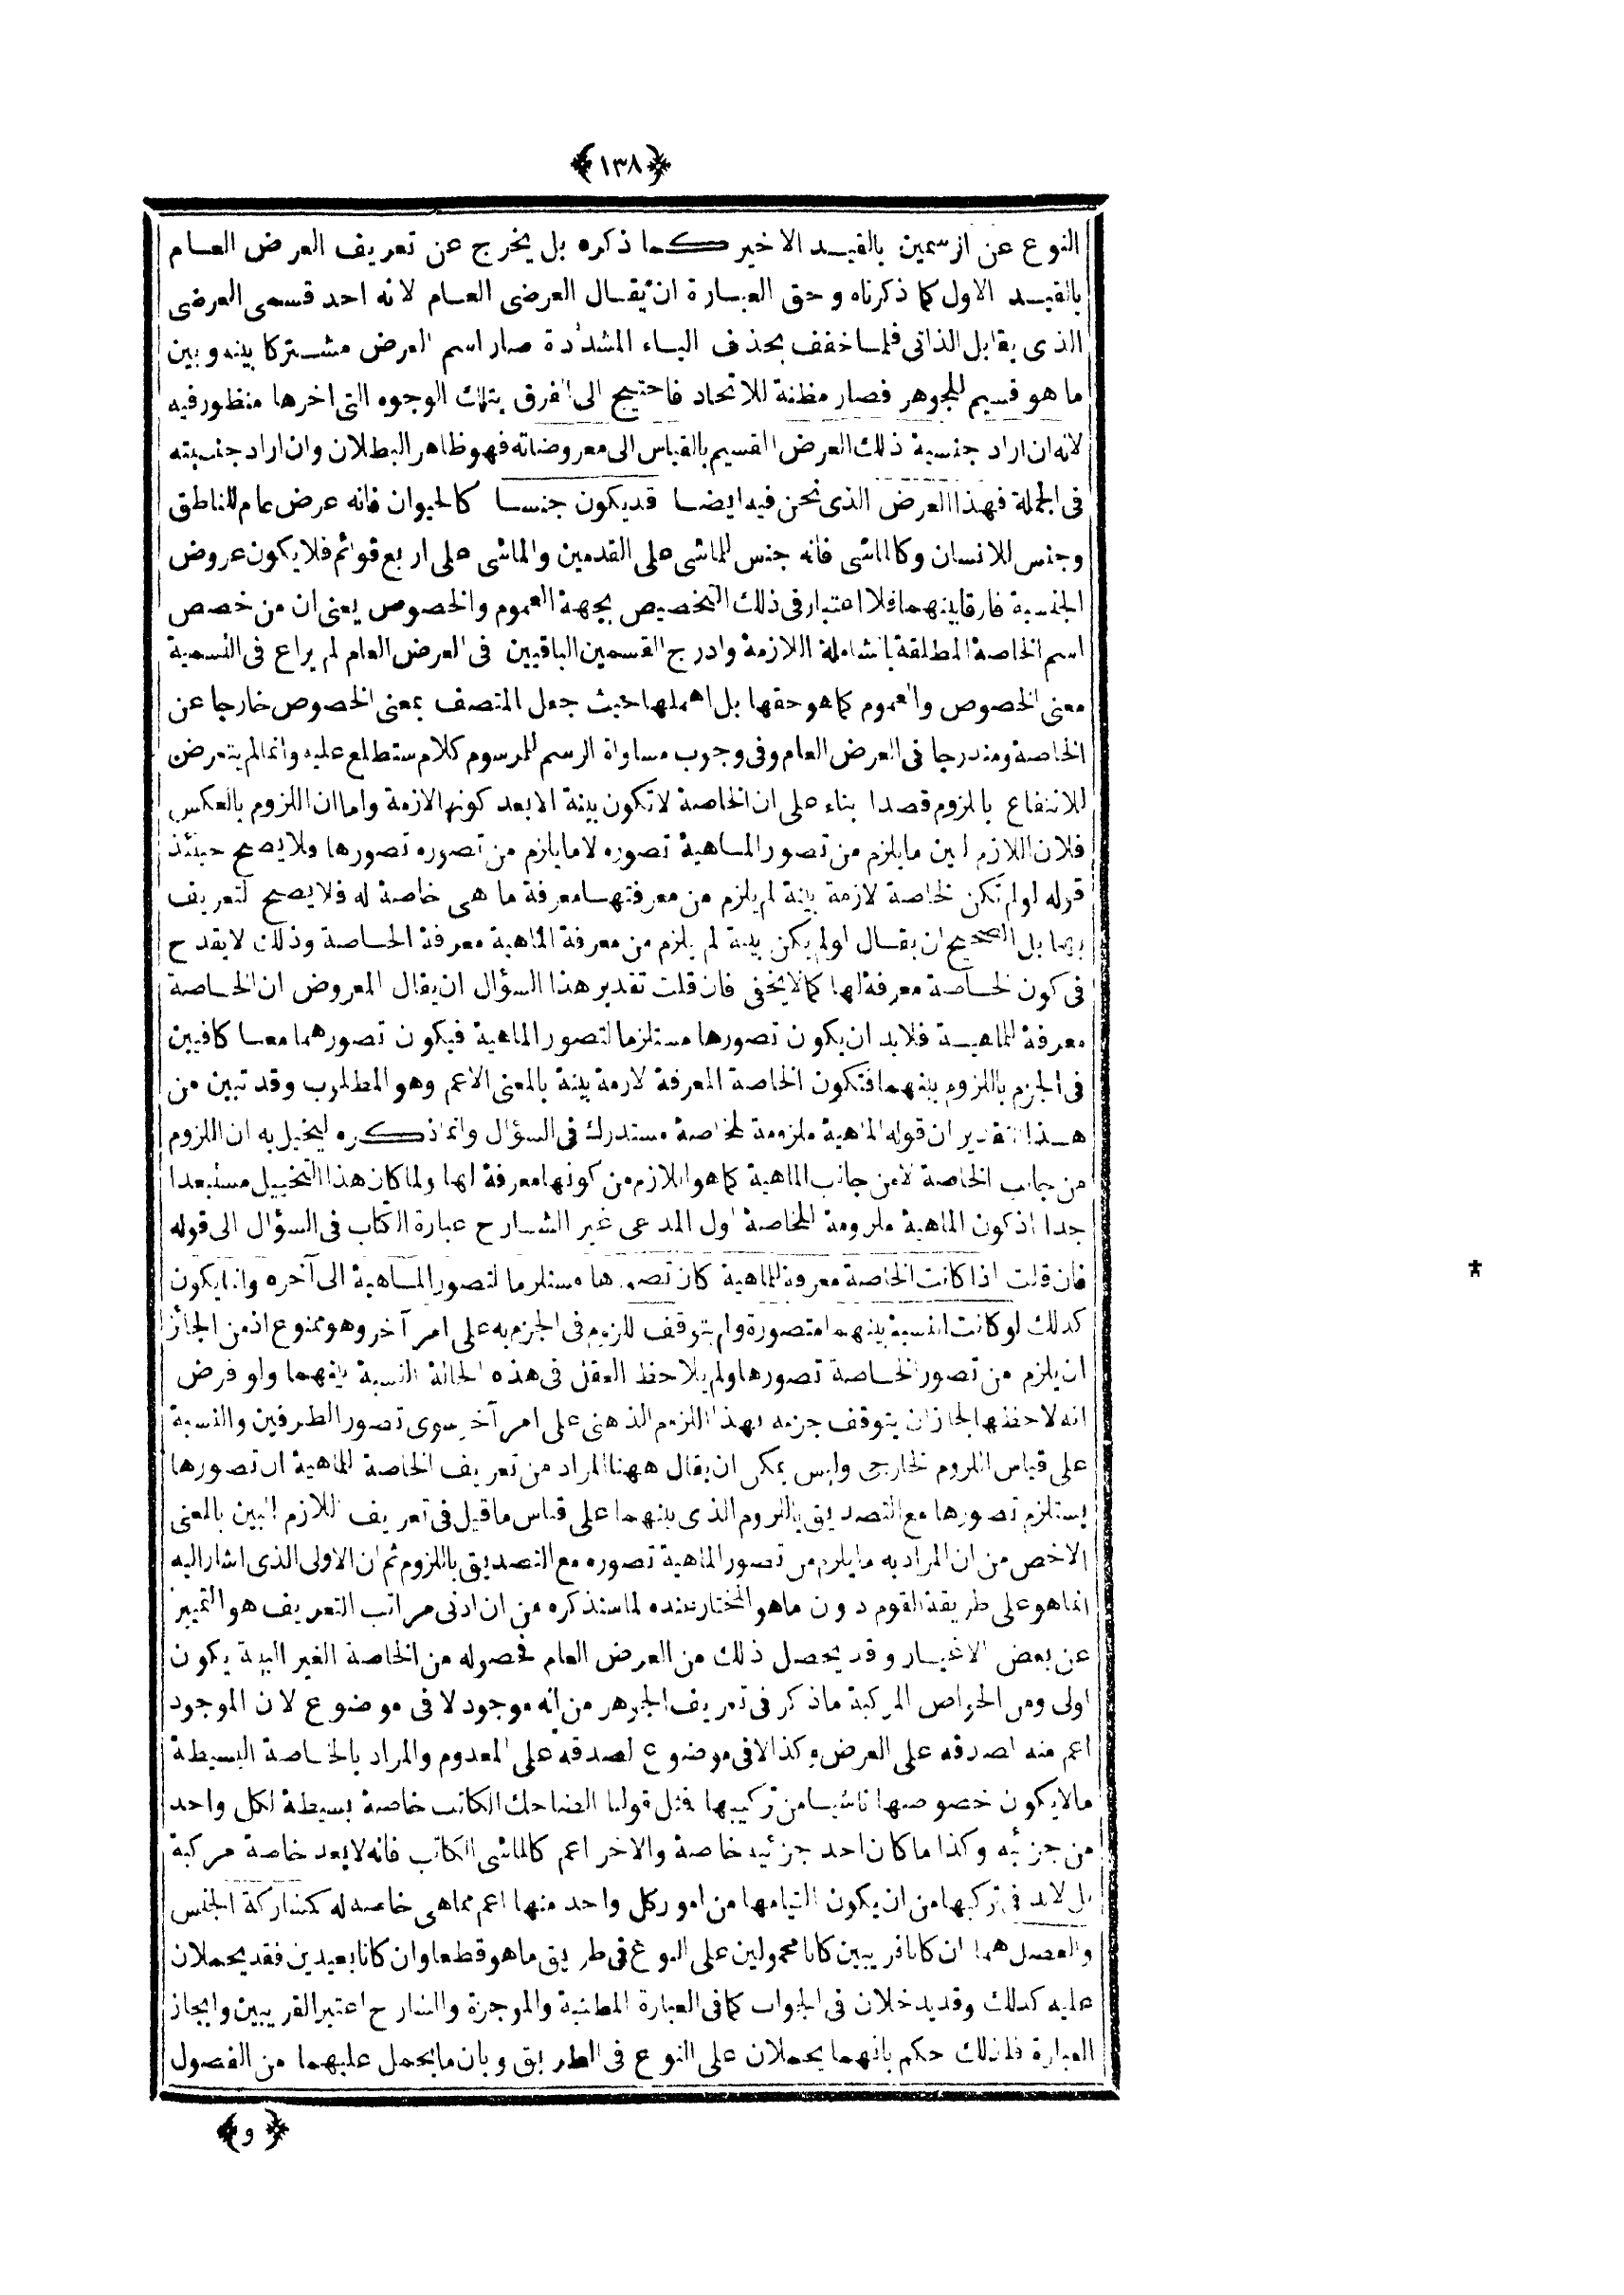 ﴿١٣٨﴾
النوع عن الرسمين بالقيد الاخير كما ذكره بل يخرج عن تعريف العرض العام
بالقيد الاول كما ذكرناه وحق العبارة ان يقال العرضى العام لانه احد قسمى العرضى
الذى يقابل الذاتى فلما خفف بحذف الياء المشددة صار اسم العرض مشتركا بينه وبين
ما هو قسيم للجوهر فصار مظنة للاتحاد فاحتيج الى الفرق بتلك الوجوه التى اخرها منظور فيه
لانه ان اراد جنسية ذلك العرض القسيم بالقياس الى معروضاته فهو ظاهر البطلان وان اراد جنسيته
فى الجملة فهذا العرض الذى نحن فيه ايضا قد يكون جنسا كالحيوان فانه عرض عام للناطق
وجنس للانسان وكالماشى فانه جنس للماشى على القدمين والماشى على اربع قوائم فلا يكون عروض
الجنسية فارقا بينهما فلا اعتبار فى ذلك التخصيص بجهة العموم والخصوص يعنى ان من خصص
اسم الخاصة المطلقة بالشاملة اللازمة وادرج القسمين الباقيين فى العرض العام لم يراع فى التسمية
معنى الخصوص والعموم كما هو حقها بل اهملها حيث جعل المتصف بمعنى الخصوص خارجا عن
الخاصة ومندرجا فى العرض العام وفى وجوب مساواة الرسم للمرسوم كلام ستطلع عليه وانما لم يتعرض
للانتفاع بالملزوم قصدا بناء على ان الخاصة لا تكون بينة الا بعد كونها لازمة واما ان اللزوم بالعكس
فلان اللازم البين ما يلزم من تصور الماهية تصوره لا ما يلزم من تصوره تصورها ولا يصح حينئذ
قوله لو لم تكن الخاصة لازمة بينة لم يلزم من معرفتها معرفة ما هى خاصة له فلا يصح التعريف
بها بل الصحيح ان يقال لو لم يكن بينة لم يلزم من معرفة الماهية معرفة الخاصة وذلك لا يقدح
فى كون الخاصة معرفة لها كما لا يخفى فان قلت تقدير هذا السؤال ان يقال المعروض ان الخاصة
معرفة للماهية فلابد ان يكون تصورها مستلزما لتصور الماهية فيكون تصورهما معا كافيين
فى الجزم باللزوم بينهما فتكون الخاصة المعرفة لازمة بينة بالمعنى الاعم وهو المطلوب وقد تبين من
هذا التقدير ان قوله الماهية ملزومة للخاصة مستدرك فى السؤال وانما ذكره ليخيل به ان اللزوم
من جانب الخاصة لا من جانب الماهية كما هو اللازم من كونها معرفة لها ولما كان هذا التخييل مستبعدا
جدا اذ كون الماهية ملزومة للخاصة اول المدعى غير الشارح عبارة الكتاب فى السؤال الى قوله
فان قلت اذا كانت الخاصة معرفة للماهية كان تصورها مستلزما لتصور الماهية الى آخره وانما يكون
كذلك لو كانت النسبة بينهما متصورة ولم يتوقف اللزوم فى الجزم به على امر آخر وهو ممنوع اذ من الجائز
ان يلزم من تصور الخاصة تصورها ولم يلاحظ العقل فى هذه الحالة النسبة بينهما ولو فرض
انه لاحظها لجاز ان يتوقف جزمه بهذا اللزوم الذهنى على امر آخر سوى تصور الطرفين والنسبة
على قياس اللزوم الخارجى وليس يمكن ان يقال ههنا المراد من تعريف الخاصة للماهية ان تصورها
يستلزم تصورها مع التصديق باللزوم الذى بينهما على قياس ما قيل فى تعريف اللازم البين بالمعنى
الاخص من ان المراد به ما يلزم من تصور الماهية تصوره مع التصديق باللزوم ثم ان الاولى الذى اشار اليه
انما هو على طريقة القوم دون ما هو المختار عنده لما سنذكره من ان ادنى مراتب التعريف هو التمييز
عن بعض الاغيار وقد يحصل ذلك من العرض العام فحصوله من الخاصة الغير البينة يكون
اولى ومن الخواص المركبة ما ذكر فى تعريف الجوهر من انه موجود لا فى موضوع لان الموجود
اعم منه لصدقه على العرض وكذا لا فى موضوع لصدقه على المعدوم والمراد بالخاصة البسيطة
ما لا يكون خصوصها ناشيا من تركيبها فمثل قولنا الضاحك الكاتب خاصة بسيطة لكل واحد
من جزئيه وكذا ما كان احد جزئيه خاصة والاخر اعم كالماشى الكاتب فانه لا يعد خاصة مركبة
بل لابد فى تركبها من ان يكون التيامها من امور كل واحد منها اعم مما هى خاصه له كمشاركة الجنس
والفصل هما ان كانا قريبين كانا محمولين على النوع فى طريق ما هو قطعا وان كانا بعيدين فقد يحملان
عليه كذلك وقد يدخلان فى الجواب كما فى العبارة المطنبة والموجزة والشارح اعتبر القريبين وايجاز
العبارة فلذلك حكم بانهما يحملان على النوع فى الطريق وبان ما يحمل عليهما من الفصول
﴿و﴾